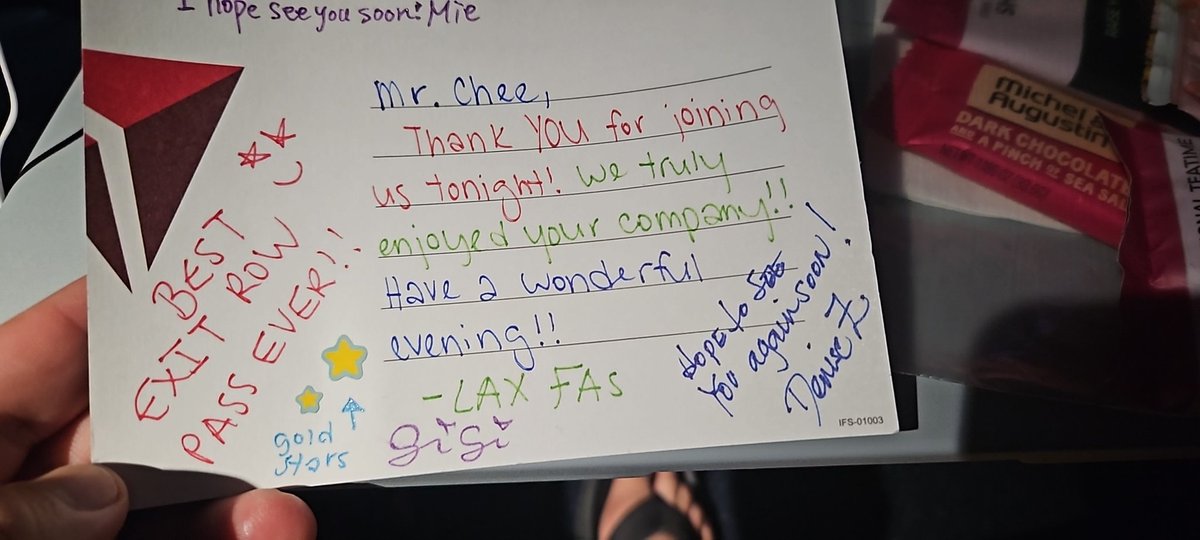 I hope see you soon! Mie
Mr. Chee,
Thank you for joining
us tonight! We truly
enjoyed your company!!
Have a wonderful
evening!!
-LAX FAs
gigi
BEST
EXIT ROW
PASS EVER!!
gold
stars
Hope to see
You again soon!
Denise Z
IFS-01003
michel &
Augustin
DARK CHOCOLATE
AND A PINCH OF SEA SAL
TEATIME